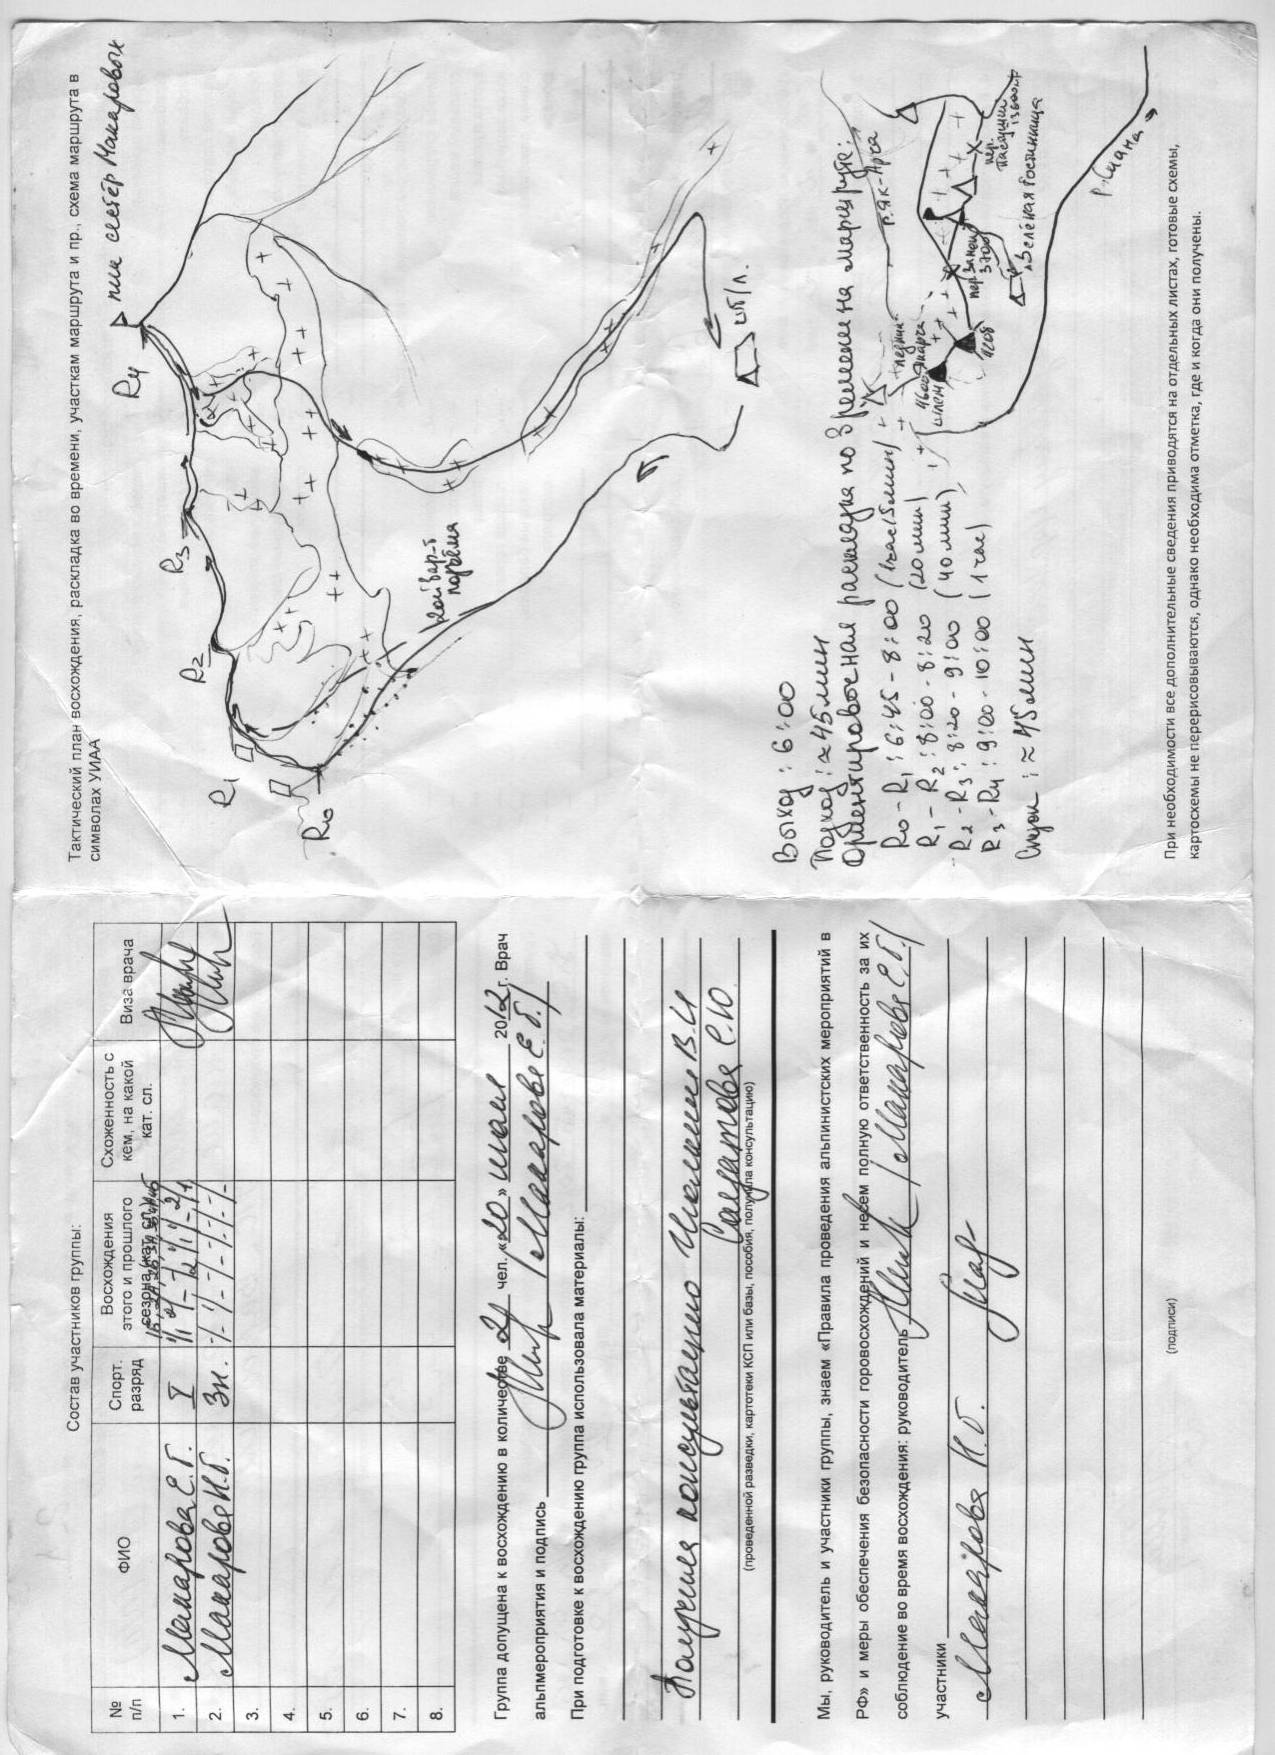 Состав участников группы:
№ п/п
ФИО
Спорт. разряд
Восхождения этого и прошлого сезона (кат. сл.)
Схоженность с кем, на какой кат. сл.
Виза врача
1. Макарова Е.Б. I
2. Макарова Н.Б. Зн.
3.
4.
5.
6.
7.
8.
Группа допущена к восхождению в количестве 2 чел. «20» июля 2012 г. Врач
альпмероприятия и подпись /Макарова Е.Б./
При подготовке к восхождению группа использовала материалы:
Получена консультацию
(проведенной разведки, картотеки КСП или базы, пособия, получила консультацию)
Мы, руководитель и участники группы, знаем «Правила проведения альпинистских мероприятий в
РФ» и меры обеспечения безопасности горовосхождений и несем полную ответственность за их
соблюдение во время восхождения: руководитель /Макарова Е.Б./
участники
Макарова Н.Б.
(подписи)
Тактический план восхождения, раскладка во времени, участкам маршрута и пр., схема маршрута в
символах УИАА
пик сестёр Макаровых
R4
R3
R2
R1
R0
подъёма
Выход: 6:00
Подход: ≈45мин
Ориентировочная раскладка по времени на маршруте:
R0 - R1: 6:45 - 8:00 (1час15мин)
R1 - R2: 8:00 - 8:20 (20мин)
R2 - R3: 8:20 - 9:00 (40мин)
R3 - R4: 9:00 - 10:00 (1час)
Спуск: ≈45мин
"Зелёная Гостиница
При необходимости все дополнительные сведения приводятся на отдельных листах, готовые схемы,
картосхемы не перерисовываются, однако необходима отметка, где и когда они получены.